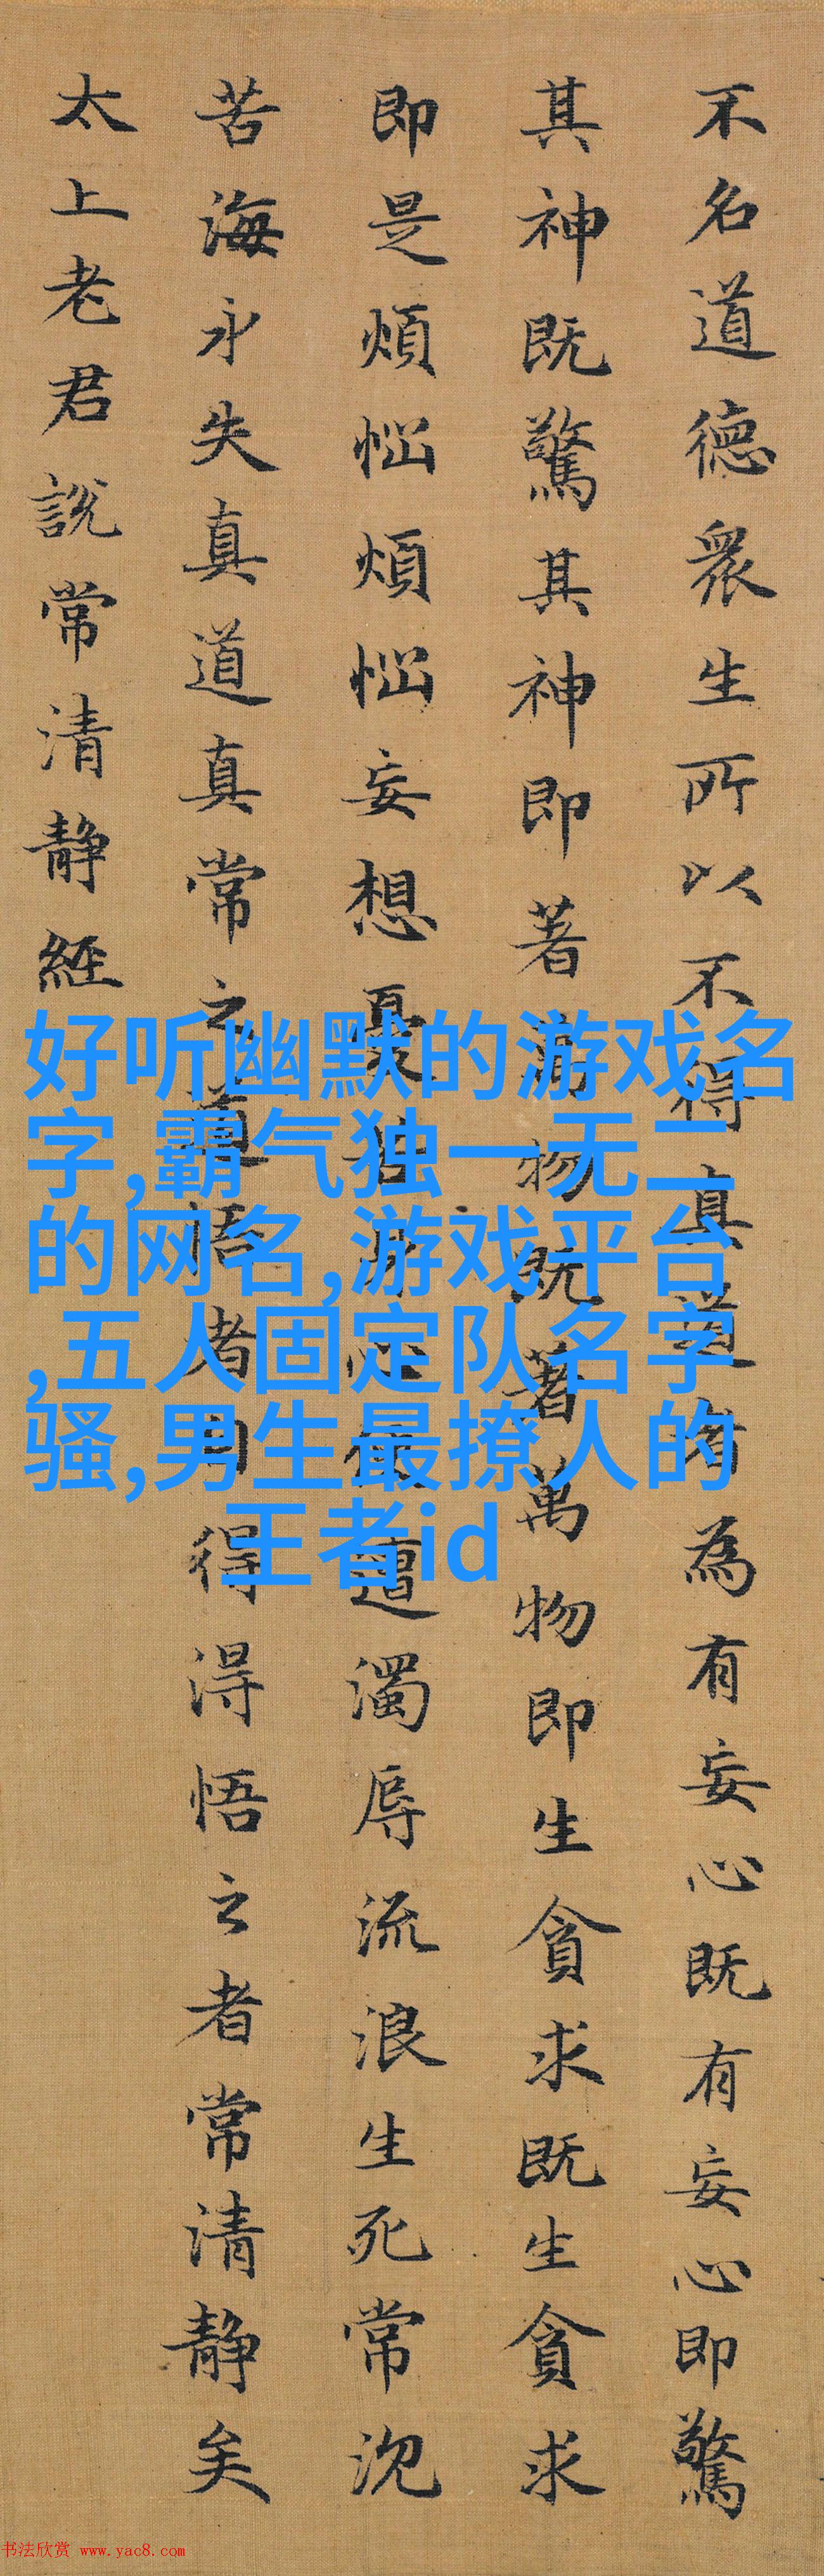 不名道德眾生所以不得真道者為有妄心既有妄心即驚
其神既驚其神即著萬物既著萬物即生貪求既生貪求
即是煩惱煩惱妄想憂苦身心便遭濁辱流浪生死常沉
苦海永失真道真常之道悟者自得得悟之者常清静矣
太上老君說常清静經
好听幽默的游戏名
字,霸气独一无二
的网名,游戏平台
,五人固定队名字
骚,男生最撩人的
王者id
书法欣赏 www.yac8.com